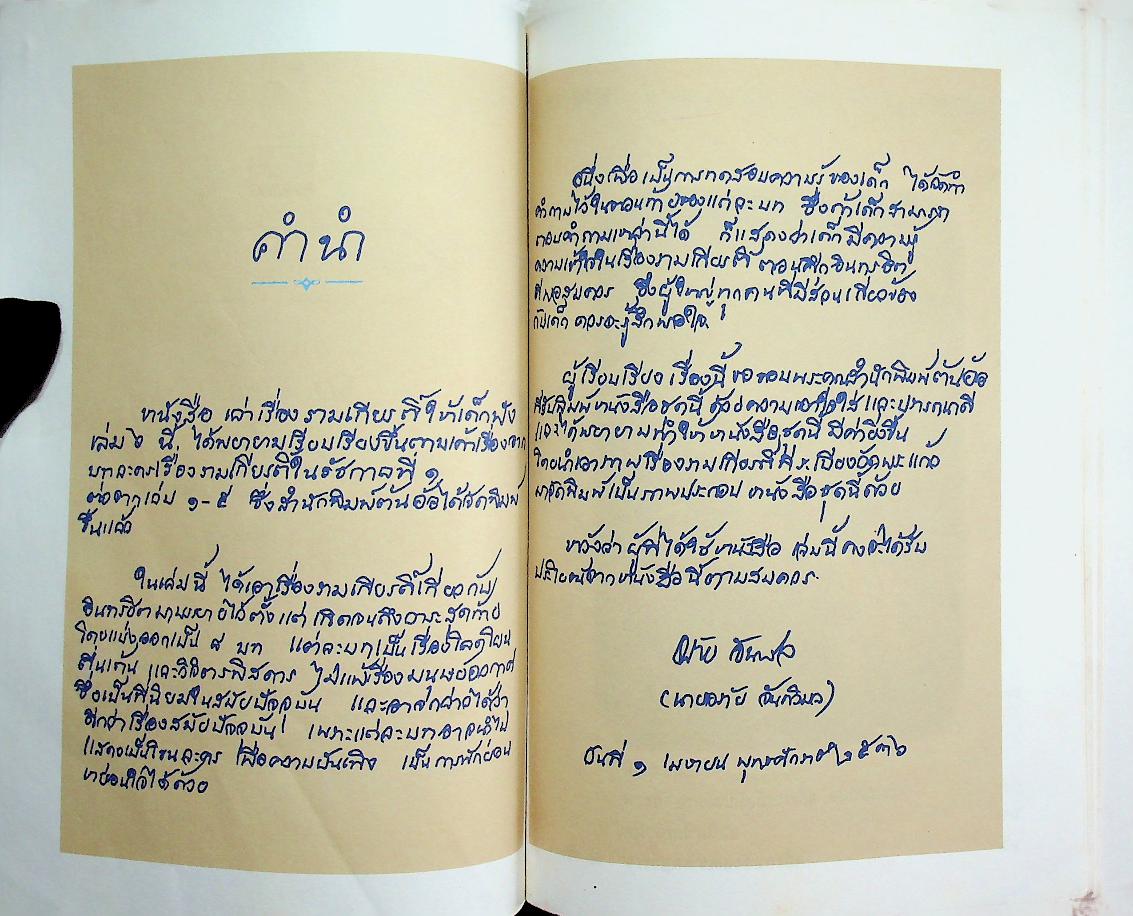 คำนำ
หนังสือ เล่าเรื่องรามเกียรติ์ให้เด็กฟัง
เล่ม ๖ นี้ ได้พยายามเรียบเรียงขึ้นตามเค้าเรื่องจาก
บทละครเรื่องรามเกียรติ์ในรัชกาลที่ ๑
ต่อจากเล่ม ๑-๕ ซึ่งสำนักพิมพ์ต้นอ้อได้จัดพิมพ์
ขึ้นแล้ว
ในเล่มนี้ ได้เอาเรื่องรามเกียรติ์เกี่ยวกับ
อินทรชิตมาบรรยายไว้ตั้งแต่ เกิดจนถึงวาระสุดท้าย
โดยแบ่งออกเป็น ๘ บท แต่ละบทเป็นเรื่องโลดโผน
ตื่นเต้น และวิจิตรพิสดาร ไม่แพ้เรื่องมนุษย์อวกาศ
ซึ่งเป็นที่นิยมในสมัยปัจจุบัน และอาจกล่าวได้ว่า
ดีกว่าเรื่องสมัยปัจจุบัน เพราะแต่ละบทอาจนำไป
แสดงเป็นโขนละคร เพื่อความบันเทิง เป็นการพักผ่อน
หย่อนใจได้ด้วย
อนึ่งเพื่อเป็นการทดสอบความรู้ของเด็ก ได้จัดทำ
คำถามไว้ในตอนท้ายของแต่ละบท ซึ่งถ้าเด็กสามารถ
ตอบคำถามเหล่านี้ได้ ก็แสดงว่าเด็กมีความรู้
ความเข้าใจในเรื่องรามเกียรติ์ ตอนศึกอินทรชิต
ดีพอสมควร ซึ่งผู้ใหญ่ทุกคนที่มีส่วนเกี่ยวข้อง
กับเด็ก ควรจะรู้สึกพอใจ
ผู้เรียบเรียงเรื่องนี้ ขอขอบพระคุณสำนักพิมพ์ต้นอ้อ
ที่จัดพิมพ์หนังสือชุดนี้ ด้วยความเอาใจใส่ และปรารถนาดี
และได้พยายามทำให้หนังสือชุดนี้ มีค่ายิ่งขึ้น
โดยนำเอาภาพเรื่องรามเกียรติ์ที่ระเบียงวัดพระแก้ว
มาจัดพิมพ์เป็นภาพประกอบ หนังสือชุดนี้ด้วย
หวังว่า ผู้ที่ได้ใช้หนังสือ เล่มนี้ คงจะได้รับ
ประโยชน์จากหนังสือนี้ตามสมควร
(นายอภัย จันทวิมล)
วันที่ ๑ เมษายน พุทธศักราช ๒๕๓๖